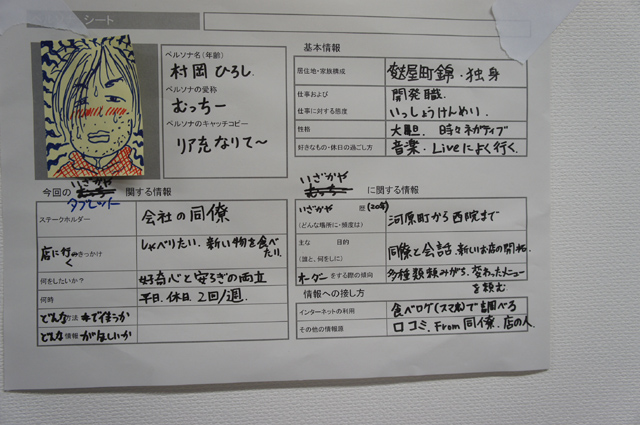 シート
ペルソナ名(年齢)
村岡 ひろし.
ペルソナの愛称
むっちー
ペルソナのキャッチコピー
リア充なりて〜
基本情報
居住地・家族構成
麩屋町錦・独身
仕事および
仕事に対する態度
開発職.
いっしょうけんめい.
性格
大胆. 時々ネガティブ
好きなもの・休日の過ごし方
音楽・Liveによく行く.
今回の いざかや 関する情報
タブレット
ステークホルダー
会社の同僚
店に行く きっかけ
しゃべりたい. 新い物を食べたい.
何をしたいか?
好奇心と安らぎの両立
何時
平日. 休日 2回/週.
どんな方法 で
どんな情報 がほしいか
いざかや に関する情報
いざかや 歴(20年)
(どんな場所に・頻度は)
河原町から西院まで
主な 目的
(誰と、何をしに)
同僚と会話. 新しいお店の開拓.
オーダー をする際の傾向
多種類頼みがち. 変わったメニューを頼む
情報への接し方
インターネットの利用
食べログ(スマホ)で調べる
その他の情報源
口コミ. From 同僚. 店の人.